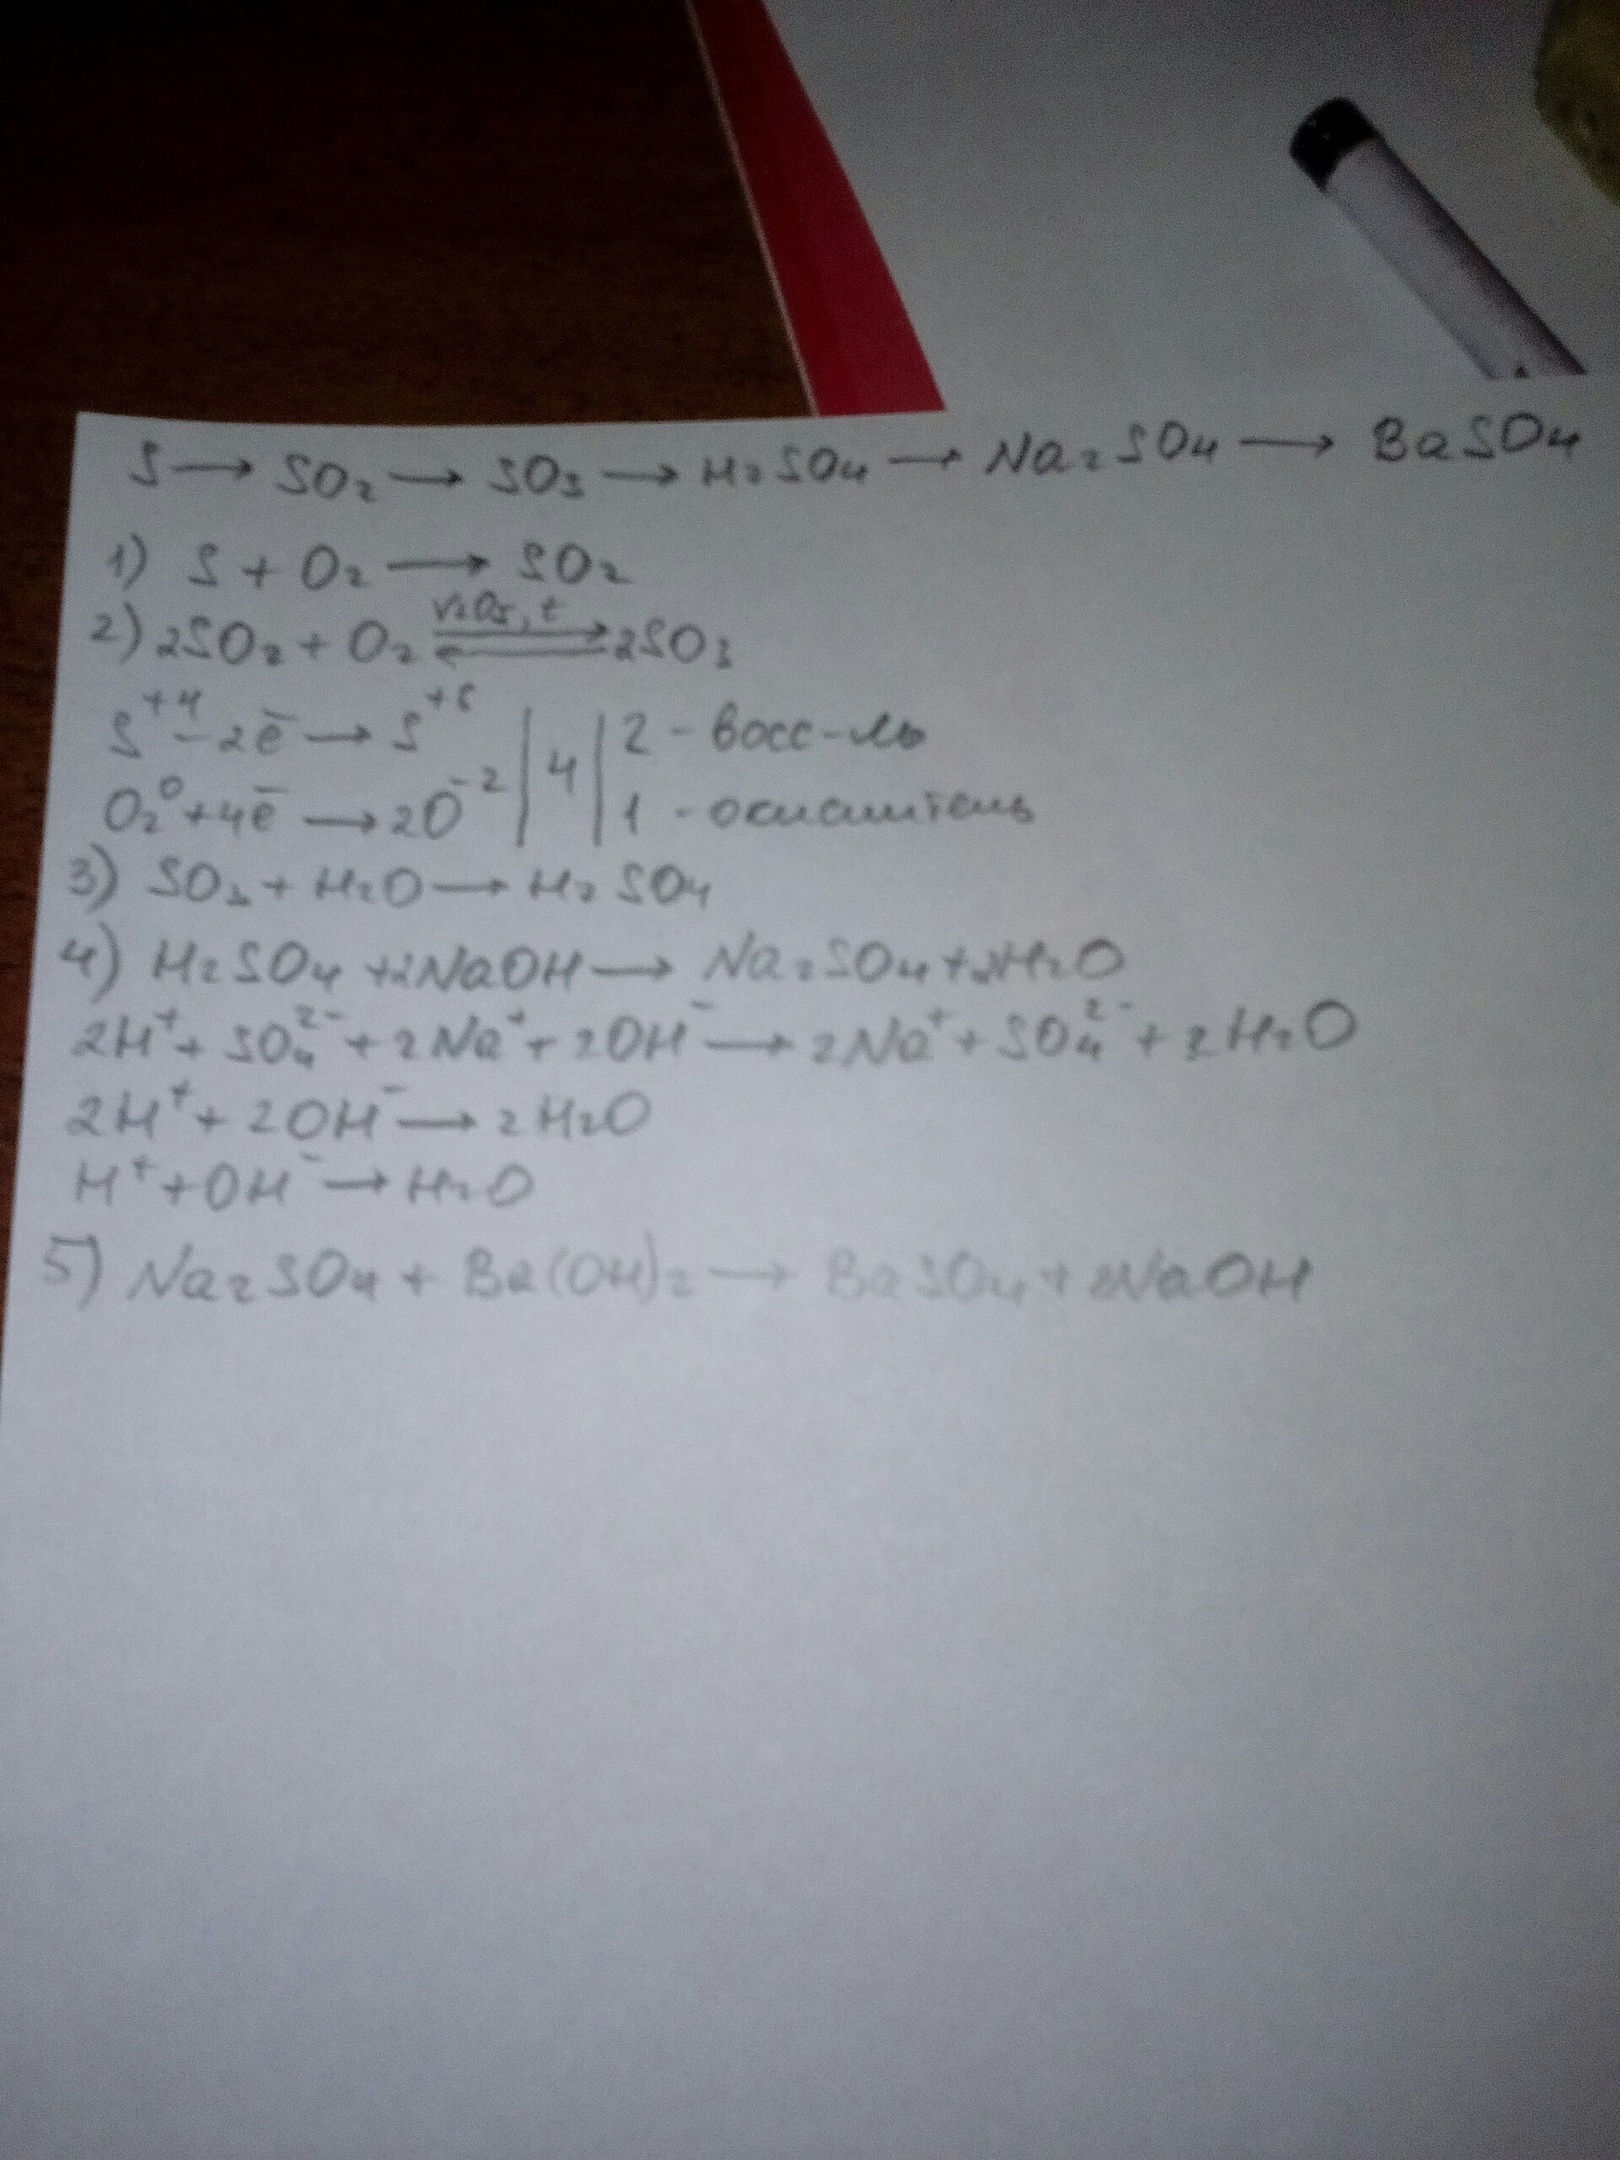 S → SO₂ → SO₃ → H₂SO₄ → Na₂SO₄ → BaSO₄
1) S + O₂ → SO₂
V₂O₅, t
2) 2SO₂ + O₂ ⇄ 2SO₃
S⁺⁴ - 2ē → S⁺⁶ | 4 | 2 - восс-ль
O₂⁰ + 4ē → 2O⁻² | | 1 - окислитель
3) SO₃ + H₂O → H₂SO₄
4) H₂SO₄ + 2NaOH → Na₂SO₄ + 2H₂O
2H⁺ + SO₄²⁻ + 2Na⁺ + 2OH⁻ → 2Na⁺ + SO₄²⁻ + 2H₂O
2H⁺ + 2OH⁻ → 2H₂O
H⁺ + OH⁻ → H₂O
5) Na₂SO₄ + Ba(OH)₂ → BaSO₄ + 2NaOH